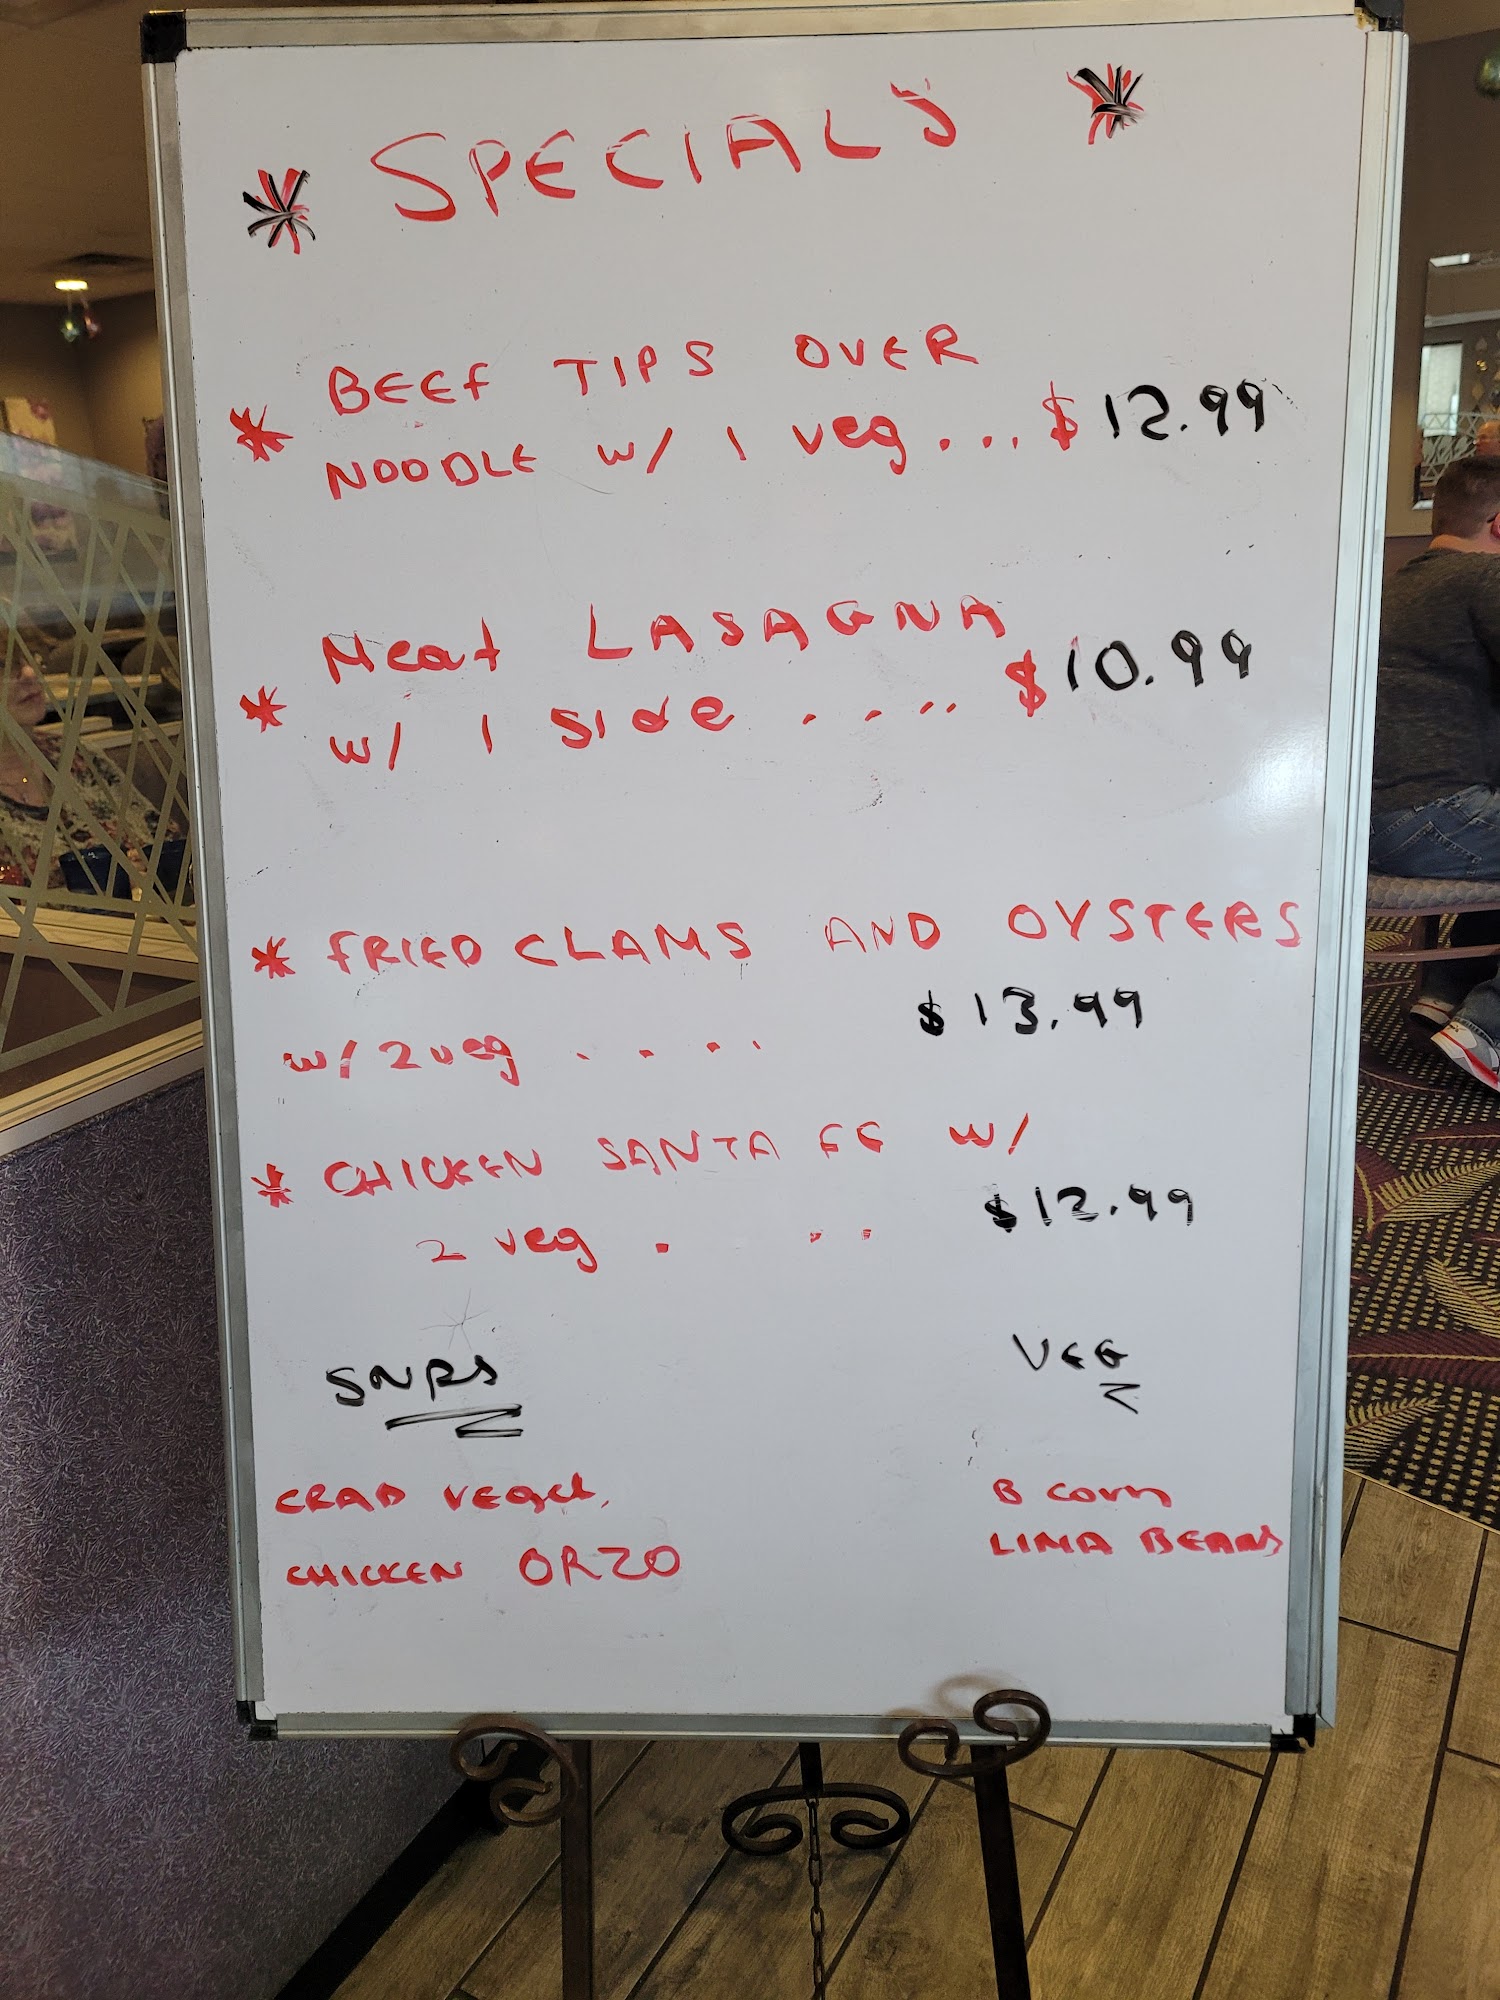 * SPECIALS *
* BEEF TIPS OVER
NOODLE w/ 1 veg .... $ 12.99
* Meat LASAGNA
w/ 1 side ..... $ 10.99
* FRIED CLAMS AND OYSTERS
w/ 2 veg .... $ 13.99
* CHICKEN SANTA FE w/
2 veg ... $ 12.99
VEG
B corn
LIMA BEANS
CHICKEN ORZO